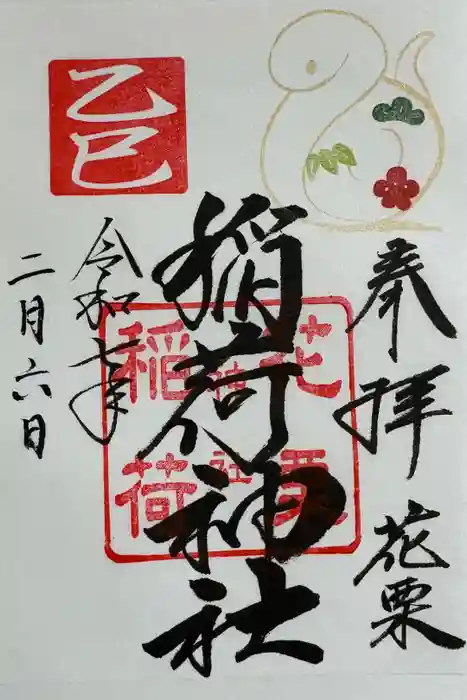 奉拝 花栗
稲荷神社
令和七年
二月六日
乙巳
花栗
稲荷
神社